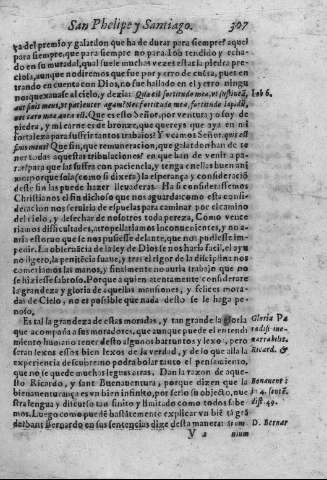 San Phelipe y Santiago. 307
ya del premio y galardon que ha de durar para siempre? aquel
para siempre, que para siempre no para? Iob tendido y echa-
do en su muradal, qual suele muchas vezes estar la piedra pre-
ciosa, aunque no diremos que fue por yerro de cuẽta, pues en
trando en cuenta con Dios, no fue hallado en el yerro ningu
no: quexauase al cielo, y dezia: Quæ est fortitudo mea, vt sustineã, Iob 6.
aut finis meus, vt patienter agam? Nec fortitudo mea, fortitudo lapidũ,
nec caro mea ænea est. Que es esto Señor, por ventura yo soy de
piedra, y mi carne es de bronze, que quereys que aya en mi
fortaleza para sufrir tantos trabajos? Veamos Señor, quis est
finis meus? Que fin, que remuneracion, que galardon han de te
ner todas aquestas tribulaciones? en que han de venir a pa-
rar? para que las sufra con paciencia, y tenga en ellas buen ani
mo: porque sola (como si dixera) la esperança y consideraciõ
deste fin las puede hazer lleuaderas. Ha si considerassemos
Christianos el fin dichoso que nos aguarda: como esta consi-
deracion nos seruiria de espuelas para caminar por el camino
del cielo, y desechar de nosotros toda pereza, Como vence
riamos dificultades, atropellariamos inconuenientes, y no a-
uria estoruo que se nos pusiesse delante, que nos pudiesse im-
pedir. La obseruãcia de la ley de Dios se nos haria facil, el ayu
no ligero, la penitẽcia suaue, y tres el rigor de la disciplina nos
comeriamos las manos, y finalmente no auria trabajo que no
se hiziesse sabroso. Porque a quien atentamente considerare
la grandeza y gloria de aquellas mansiones, y felices mora-
das de Cielo, no es possible que nada desto se le haga pe-
noso,
Es tal la grandeza de estas moradas, y tan grande la gloria Gloria Pa
que acompaña a sus moradores, que aunque puede el entendi radisi ine-
miento humano tener desto algunos barruntos y lexos, pero narrabilis.
seran lexos essos bien lexos de la verdad, y de lo que alla la Ricard. &
experiencia descubre no podra bolar tanto el pensamiento,
que no se quede muchas leguas atras. Dan la razon de aque-
sto Ricardo, y sant Buenauentura, porque dizen que la Bonauent:
bienauenturança es vn bien infinito, por serlo su objecto, nue In 4. sentẽ.
stra lengua y discurso tan finito y limitado como todos sabe dist. 49.
mos. Luego como puede bastãtemente explicar vn biẽ tã grã
de? sant Bernardo en sus sentencias dize desta manera: tram D. Bernar
V 2 nium